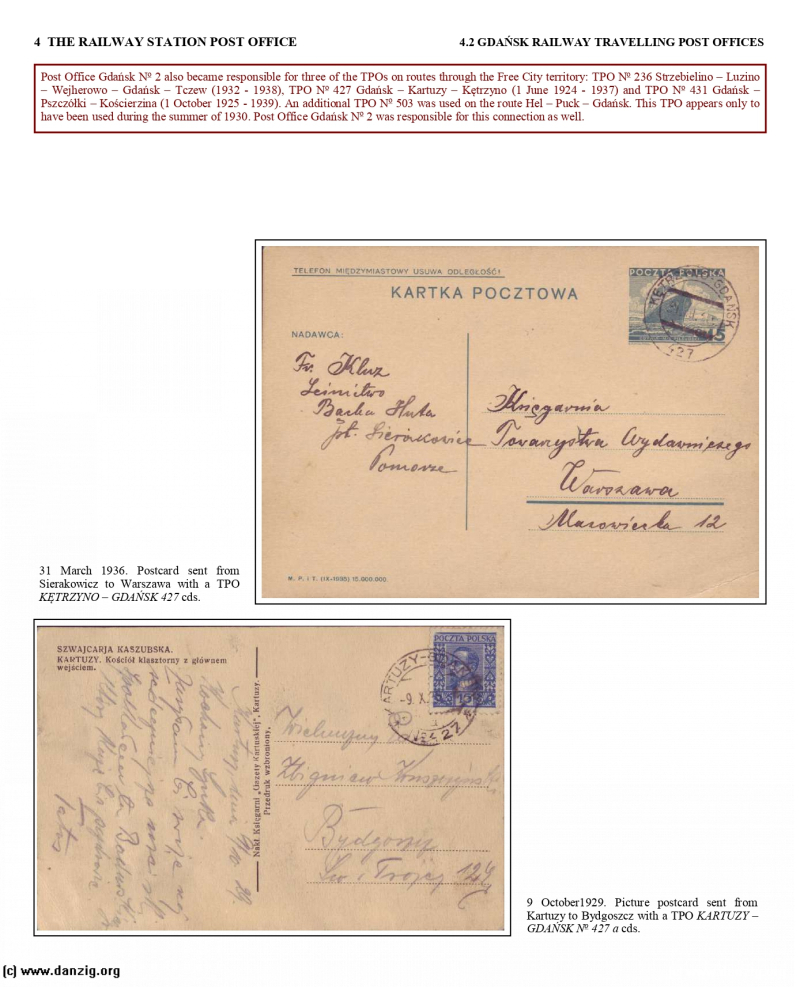 4 THE RAILWAY STATION POST OFFICE
4.2 GDAŃSK RAILWAY TRAVELLING POST OFFICES
Post Office Gdańsk Nº 2 also became responsible for three of the TPOs on routes through the Free City territory: TPO Nº 236 Strzebielino – Luzino
– Wejherowo – Gdańsk – Tczew (1932 - 1938), TPO Nº 427 Gdańsk – Kartuzy – Kętrzyno (1 June 1924 - 1937) and TPO Nº 431 Gdańsk –
Pszczółki – Kościerzina (1 October 1925 - 1939). An additional TPO Nº 503 was used on the route Hel – Puck – Gdańsk. This TPO appears only to
have been used during the summer of 1930. Post Office Gdańsk Nº 2 was responsible for this connection as well.
TELEFON MIĘDZYMIASTOWY USUWA ODLEGŁOŚĆ!
KARTKA POCZTOWA
POCZTA POLSKA
KĘTRZYNO-GDAŃSK
15
427
NADAWCA:
Fr. Kluz
Leśnictwo
Backa Huta
pt. Sierakowice
Pomorze
Księgarnia
Towarzystwa Wydawniczego
Warszawa
Mazowiecka 12
M. P. i T. (IX-1935) 15.000.000.
31 March 1936. Postcard sent from
Sierakowicz to Warszawa with a TPO
KĘTRZYNO – GDAŃSK 427 cds.
SZWAJCARJA KASZUBSKA.
KARTUZY. Kościół klasztorny z głównem
wejściem.
Nakł. Księgarni „Gazety Kartuskiej", Kartuzy.
Przedruk wzbroniony.
POCZTA POLSKA
KARTUZY-GDAŃSK
-9. X. 29
Nº 427 a
Kartuzy, dnia 9/10 29.
Zbigniew
Bydgoszcz
Św. Trójcy 12
9 October1929. Picture postcard sent from
Kartuzy to Bydgoszcz with a TPO KARTUZY –
GDAŃSK Nº 427 a cds.
(c) www.danzig.org